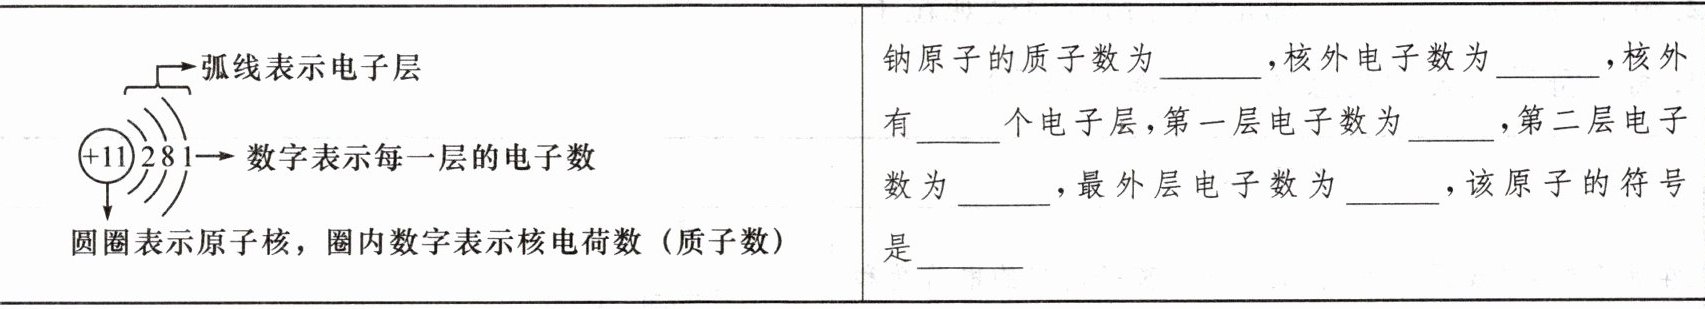 弧线表示电子层
+11 2 8 1 数字表示每一层的电子数
圆圈表示原子核，圈内数字表示核电荷数（质子数）
钠原子的质子数为______，核外电子数为______，核外
有_____个电子层，第一层电子数为_____，第二层电子
数为_____，最外层电子数为_____，该原子的符号
是______